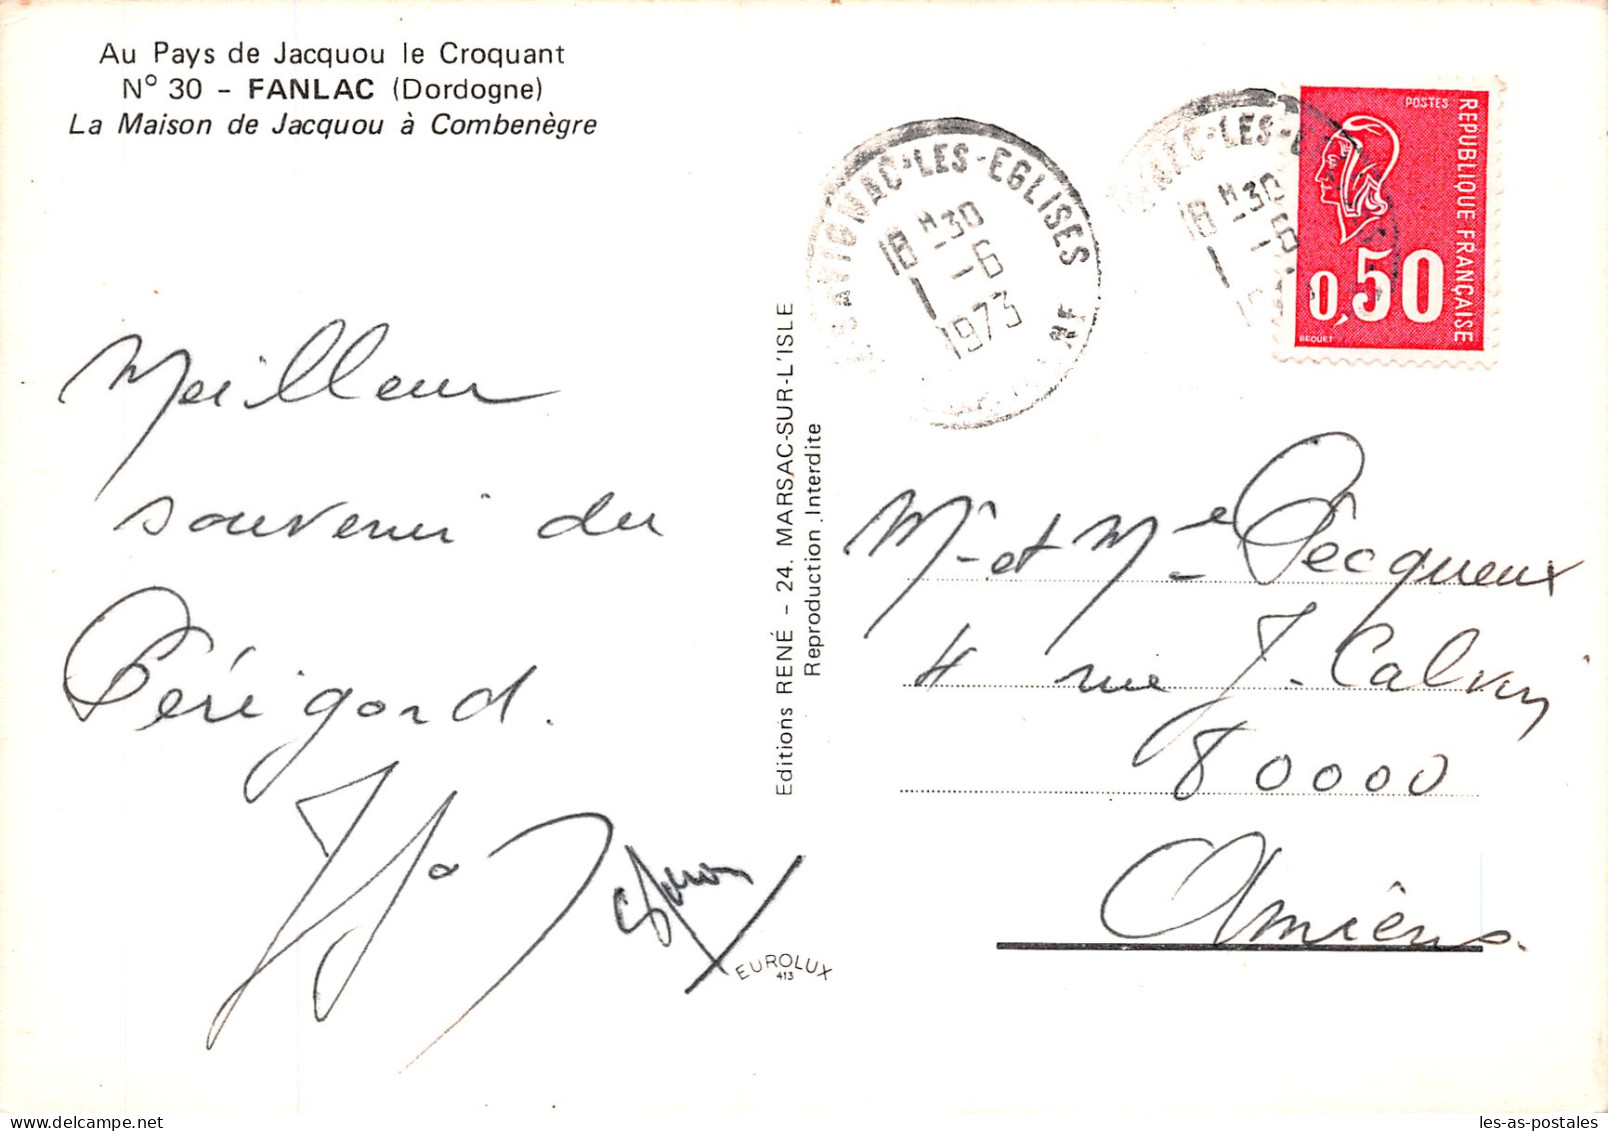 Au Pays de Jacquou le Croquant
N° 30 - FANLAC (Dordogne)
La Maison de Jacquou à Combenègre
Meilleur
souvenir du
Périgord.
Editions RENÉ - 24. MARSAC-SUR-L'ISLE
Reproduction Interdite
EUROLUX
413
SAVIGNAC-LES-EGLISES
18 H 30
1 -6
1973
18 H 30
1 -6
POSTES
REPUBLIQUE FRANÇAISE
0,50
BEQUET
Mr et Mme Pecqueux
4 rue J. Calvin
80000
Amiens.
les-as-postales